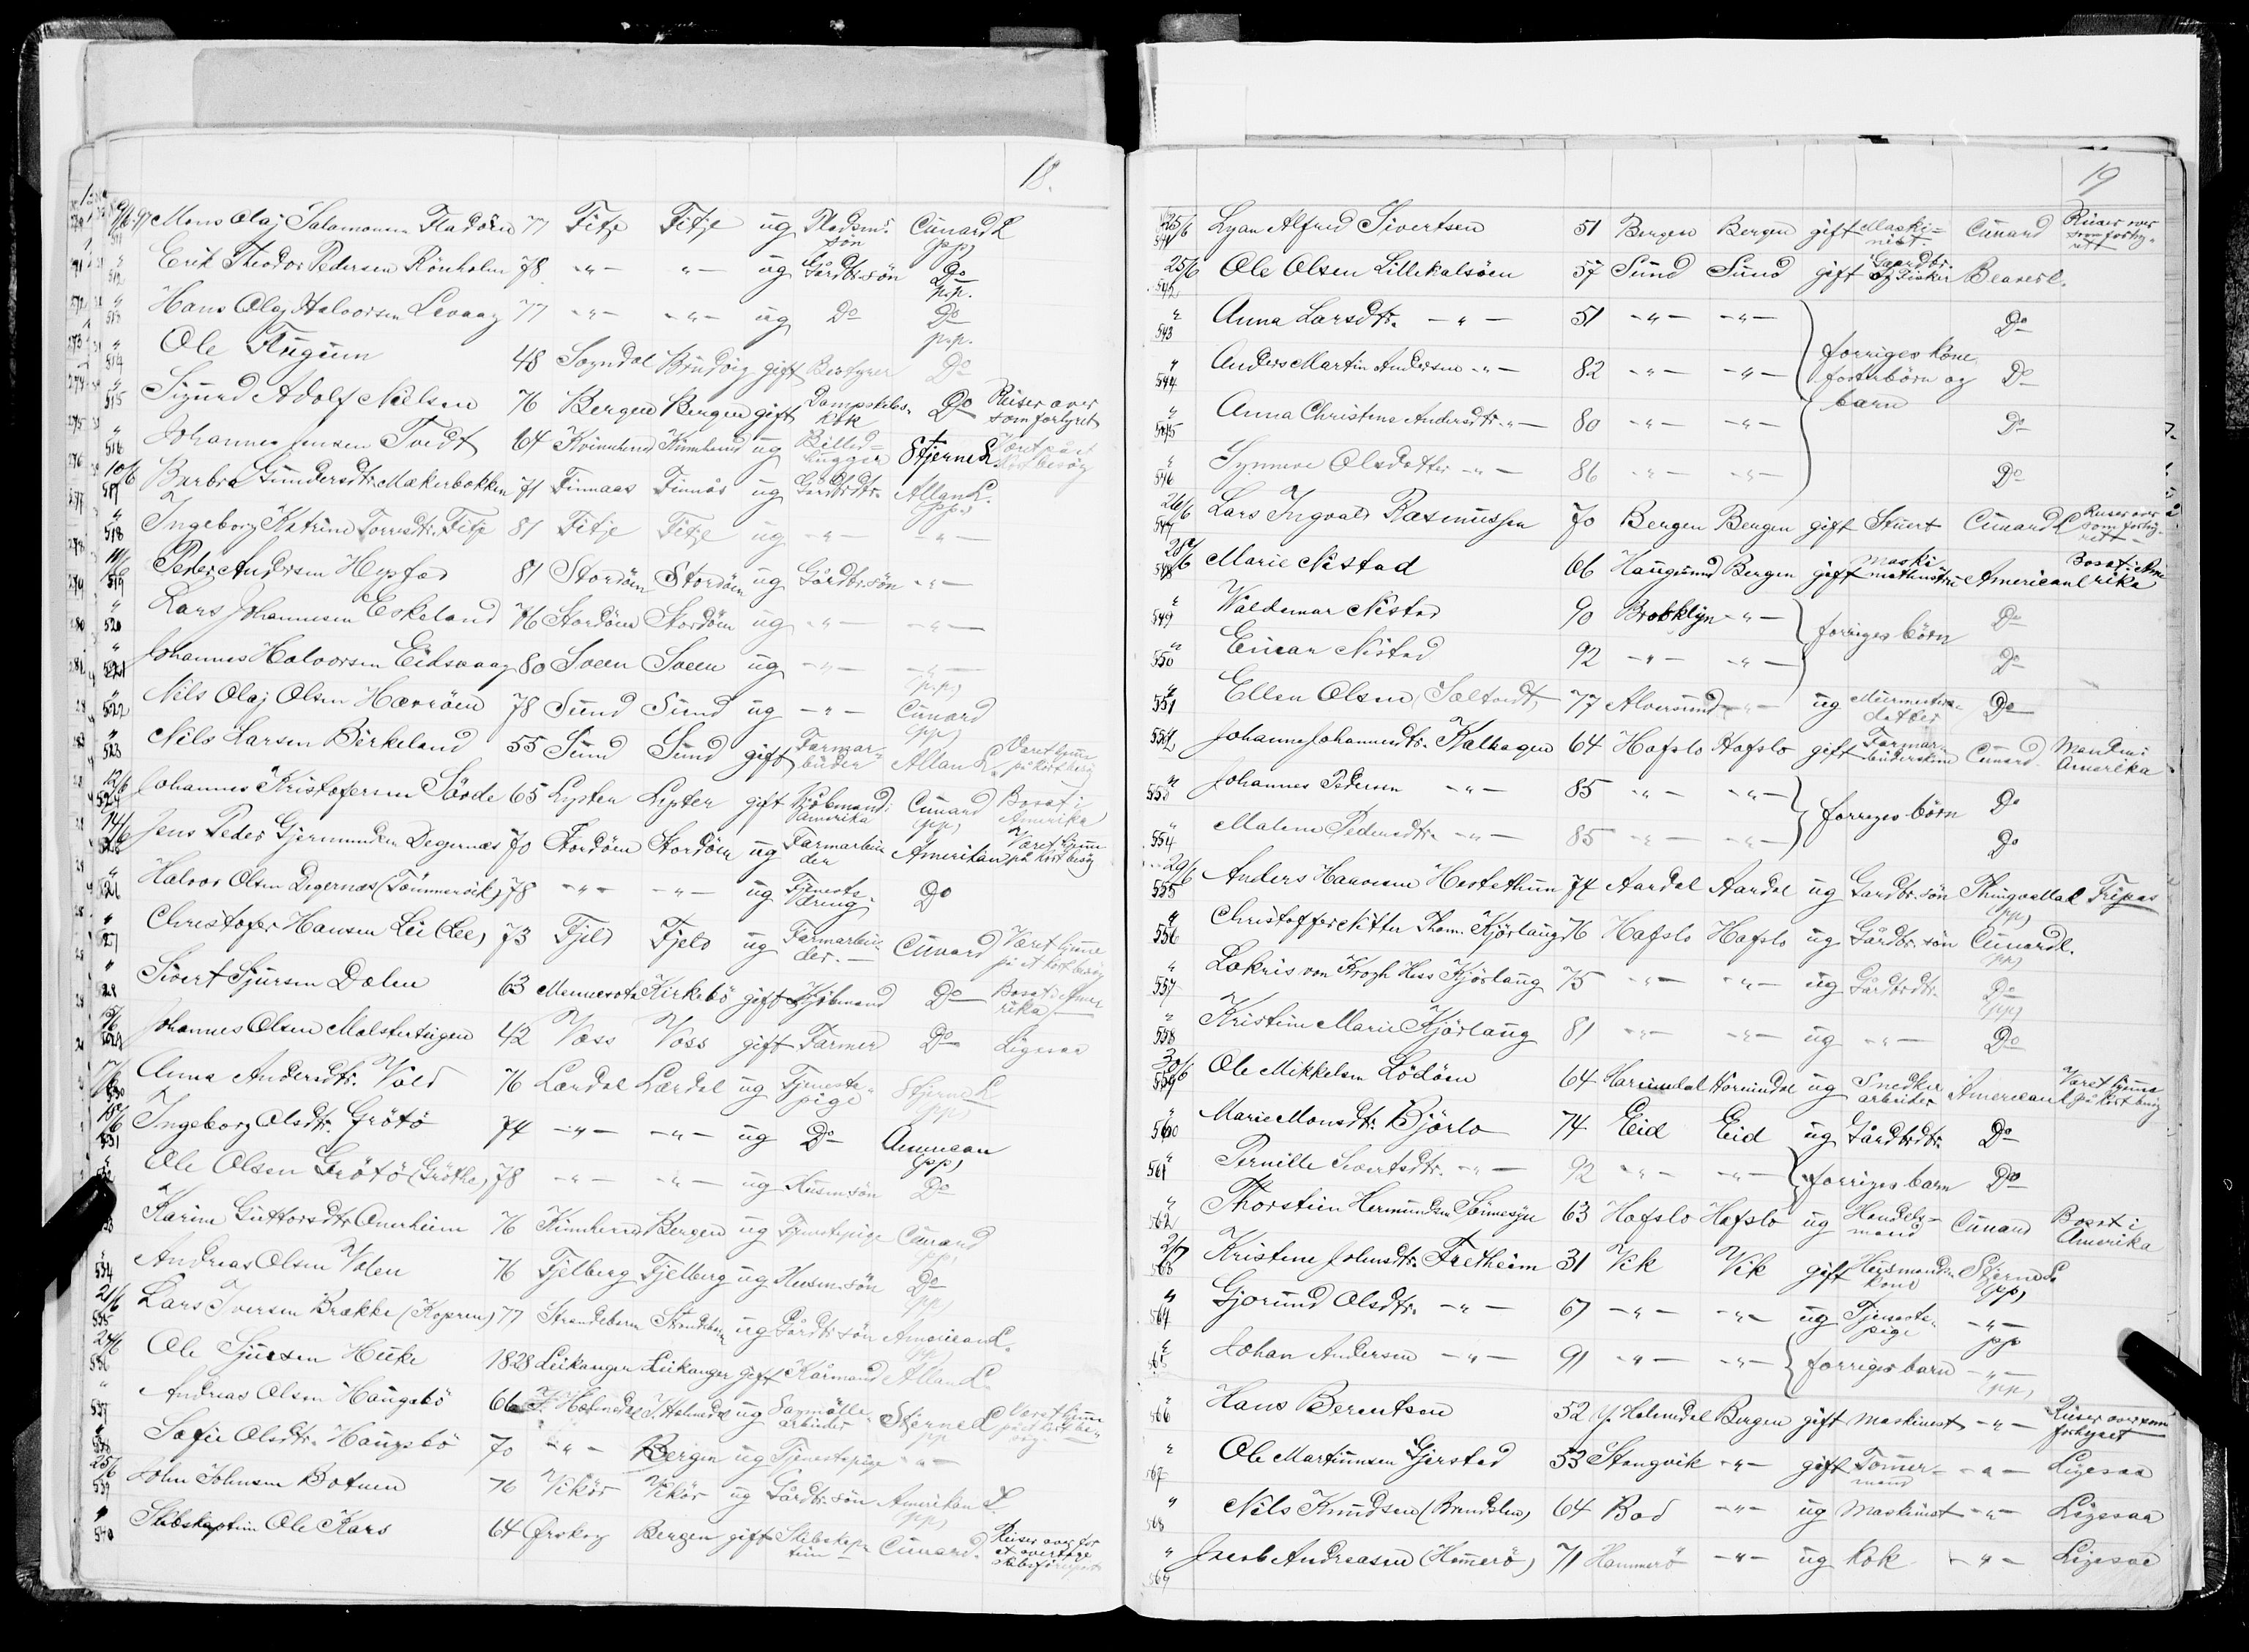 18.
9/6 97 Mons Olaj Salomonsen Fladöen 77 Fitje Fitje ug Pladsms. søn Cunard L (pp)
512 Erik Theodor Pedersen Rönholm 78 -"- "- ug Gårdbr.søn Do p.p.
513 Hans Olaj Halvorsen Levaag 77 -"- -"- ug Do Do p.p.
514 Ole Flugum 48 Sogndal gift Bestyrer Do
515 Sigurd Adolf Nielsen 76 Bergen Bergen gift Dampskibs-kok Do Reiser over som forhyret
516 Johannes Jensen Tvedt 64 Kvinnherred Kvinnherred ug Billed=hugger Stjerne L Været på et kort besøg
10/6 517 Barbra Gundersdtr. Mækerbakken 71 Finnaas Finnås ug Gårdbrdtr. Allan L. (pp)
518 Ingeborg Katrine Torresdtr. Fitje 81 Fitje Fitje ug -"- -"-
11/6 519 Peder Andersen Hysfad 81 Stordöen Stordöen ug Gårdbr.søn -"-
520 Lars Johannesen Eskeland 76 Stordöen Stordöen ug -"- -"-
521 Johannes Halvorsen Eidsvaag 80 Sveen Sveen ug -"- -"- (p.p)
522 Nils Olaj Olsen Hævröen 78 Sund Sund ug -"- Cunard (pp)
523 Nils Larsen Birkeland 55 Sund Sund gift Farmarbeider Allan L. Været hjemme på kort besøg
12/6 524 Johannes Kristofersen Sörde 65 Lyster Lyster gift Kjöbmand i Amerika Cunard (pp) Bosat i Amerika
14/6 525 Jens Peder Gjermundsen Degernæs 70 Stordöen Stordöen ug Farmarbeider Amerikan Været hjemme på kort besøg
526 Halvor Olsen Degernæs (Tömmervik) 78 -"- -"- ug Tjenestedreng Do
527 Christofer Hansen Lie (Lee) 73 Fjeld Fjeld ug Farmarbeider.- Cunard Været hjemme på et kort besøg
528 Sivert Sjursen Dalen 63 Mennesota Kirkebö gift Kjöbmand Do Bosat i Amerika
15/6 529 Johannes Olsen Malsterteigen 42 Voss Voss gift Farmer Do Ligesaa
17/6 530 Anna Andersdtr. Vold 76 Lærdal Lærdal ug Tjenestepige Stjerne L (pp)
18/6 531 Ingeborg Olsdtr. Grötö 74 -"- -"- ug Do American (pp)
532 Ole Olsen Grötö (Grötha) 78 -"- -"- ug Husm.søn Do
Karine Guttorsdtr. Anerheim 76 Kvinherred Bergen ug Tjenestepige Cunard (pp)
534 Andreas Olsen Valen 76 Fjelberg Fjelberg ug Husm.søn Do (pp)
21/6 535 Lars Iversen Brække (Kopren) 77 Strandebarm Strandebarm ug Gårdbr.søn American L. (pp)
24/6 536 Ole Sjursen Huke 1828 Leikanger Leikanger gift Kårmand Allan L.
537 Andreas Olsen Haugsbö 66 Y. Holmedal Y. Holmedal ug Sagmölle-arbeider Stjerne L pp Været hjemme på et kort besøg.
538 Sofie Olsdtr. Haugsbö 70 -"- Bergen ug Tjenestepige -"-
25/6 539 John Johnsen Botnen 76 Vikör Vikör ug Gårdbr.søn Amerikan L. (pp)
540 Skibskaptein Ole Kars 64 Ørskog Bergen gift Skibskaptein Cunard. Reiser over for at overtage
19
25/6 541 Lyan Alfred Sivertsen 51 Bergen Bergen gift Maski=nist Cunard Reiser over som forhyrett
25/6 542 Ole Olsen Lillekalsöen 57 Sund Sund gift Gaardbr. og Fisker Beaverl.
" 543 Anna Larsdtr. -"- 51 -"- -"- Do
" 544 Anders Martin Andersen -"- 82 -"- -"- forriges kone, fosterbörn og barn Do
" 545 Anna Christine Andersdtr. -"- 80 -"- -"- Do
" 546 Synneve Olsdatter -"- 86 -"- -"- Do
26/6 547 Lars Ingvald Rasmussen 70 Bergen Bergen gift Stuert Cunard L Reiser over som forhyrett -
28/6 548 Marie Nistad 66 Haugsund Bergen gift American L Bosat i Amerika
" 549 Valdemar Nistad 90 Brooklyn -"- forriges börn Do
" 550 Einar Nistad 92 -"- -"- Do
" 551 Ellen Olsen (Sæltvedt) 77 Alversund -"- ug Murmesterdatter Do
552 Johanne Johannesdtr. Kalhagen 64 Hafslo Hafslo gift Farmarbeiderskone Cunard Manden i Amerika
" 553 Johannes Pedersen -"- 85 -"- -"- forriges börn Do
" 554 Malene Pedersdtr. -"- 85 -"- -"- Do
29/6 555 Anders Haavesen Hestethun 74 Aardal Aardal ug Gardbr.søn Thingvalla L Fripas
" 556 Christoffer Nitter Thom. Kjörlaug 76 Hafslo Hafslo ug Gårdbr.søn Cunard L. (pp)
" 557 Lokris von Krogh Hess Kjörlaug 75 -"- -"- ug Gårdbrdtr. Do (pp)
" 558 Kristine Marie Kjörlaug 81 -"- -"- ug -"- Do
30/6 559 Ole Mikkelsen Lödöen 64 Hornindal Hornindal ug Snedkerarbeider American L Været hjemme på kort besøg
" 560 Marie Monsdtr. Bjørlo 74 Eid Eid ug Gårdbrdtr. Do
" 561 Pernille Sivertsdtr. -"- 92 -"- -"- forriges barn Do
" 562 Thorstein Hermundsen Sönnesyn 63 Hafslo Hafslo ug Handelsmand Cunard Bosat i Amerika
2/7 563 Kristine Johnsdtr. Fretheim 31 Vik Vik gift Husmandskone Stjerne L. (pp)
" 564 Gjorund Olsdtr. -"- 67 -"- -"- ug Tjenestepige -"- pp
" 565 Johan Andersen -"- 91 -"- -"- forriges barn -"- (pp)
" 566 Hans Berentsen 52 Y. Holmedal Bergen gift Maskinist -"- Reiser over som forhyret
" 567 Ole Martinusen Gjerstad 53 Stangvik -"- gift Tömmermand -"- Ligesaa
" 568 Nils Knudsen (Brendslen) 64 Bod -"- ug Maskinist -"- Ligesaa
" 569 Jacob Andreasen (Hamerö) 71 Hammerö -"- ug Kok -"- Ligesaa